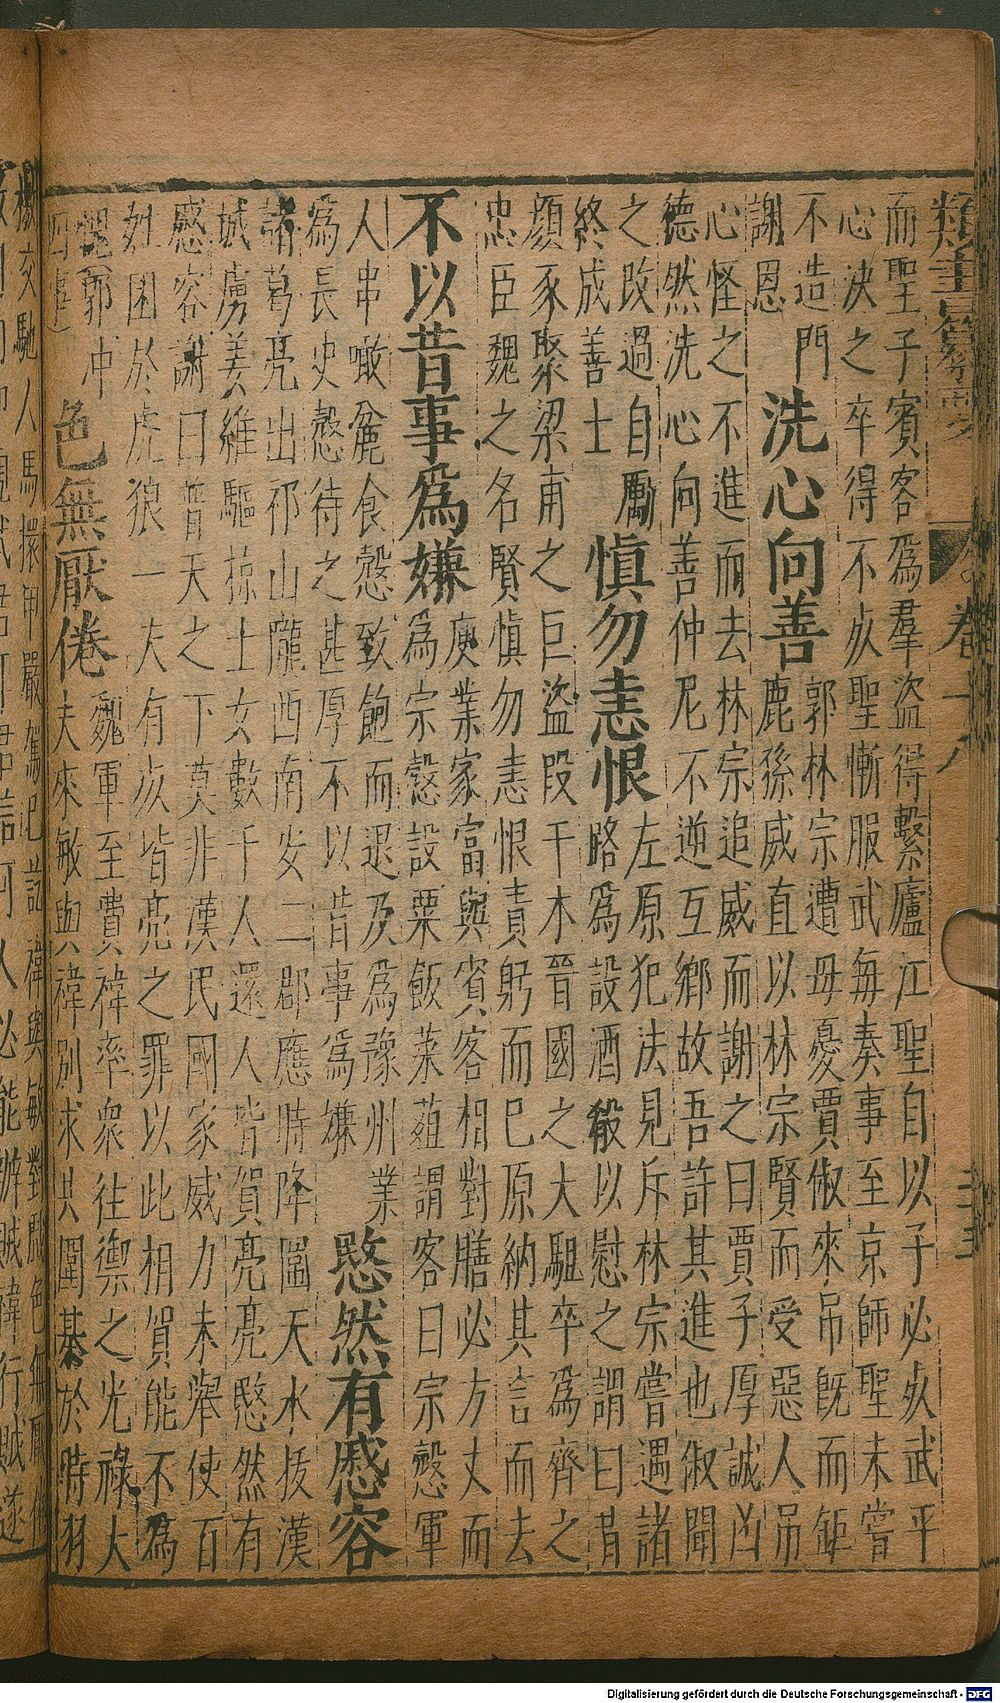 類書纂要 卷十八
而聖子賓客爲羣盜得繫廬江聖自以子必死武平
心決之卒得不死聖慚服武每奏事至京師聖未嘗
不造門
謝恩
洗心向善
郭林宗遭母憂賈俶來吊旣而鉅
鹿孫威直以林宗賢而受惡人吊
心怪之不進而去林宗追威而謝之曰賈子厚誠凶
德然洗心向善仲尼不逆互鄉故吾許其進也俶聞
之改過自厲
終成善士
慎勿恚恨
左原犯法見斥林宗嘗遇諸
略爲設酒殽以慰之謂曰昔
顔豕聚梁甫之巨盜段干木晉國之大駔卒爲齊之
忠臣魏之名賢慎勿恚恨責躬而已原納其言而去
不以昔事爲嫌
庾業家富與賓客相對膳必方丈而
為宗愨設粟飯菜葅謂客曰宗愨軍
人串噉麄食愨致飽而退及為豫州業
為長史愨待之甚厚不以昔事為嫌
愍然有慼容
諸葛亮出祁山隴西南安二郡應時降圍天水拔漢
城虜姜維驅掠士女數千人還人皆賀亮亮愍然有
慼容謝曰普天之下莫非漢民國家威力未舉使百
姓困於虎狼一夫有死皆亮之罪以此相賀能不為
愧郭冲
四事
色無厭倦
魏軍至費禕率衆往禦之光祿大
夫來敏與禕別求共圍棊於時羽
檄交馳人馬擐甲嚴駕已訖禕與敏對戲色無厭倦
可人必能辦賊禕行賊遂
Digitalisierung gefördert durch die Deutsche Forschungsgemeinschaft - DFG